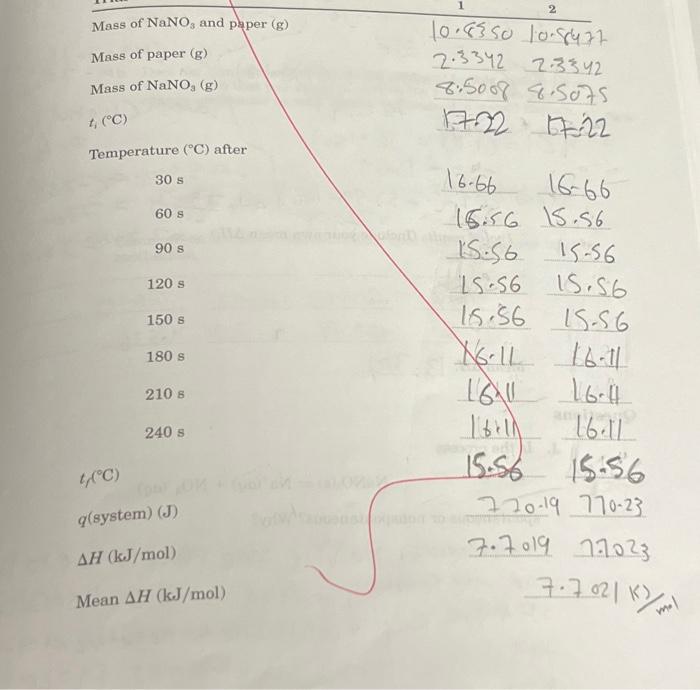 1 2
Mass of NaNO₃ and paper (g) 10.8350
Mass of paper (g) 2.3342 2.3342
Mass of NaNO₃ (g) 8.5008 8.5075
tᵢ (°C) 17.22 17.22
Temperature (°C) after
30 s 16.66 16.66
60 s 15.56 15.56
90 s 15.56 15.56
120 s 15.56 15.56
150 s 15.56 15.56
180 s 16.11 16.11
210 s 16.11 16.11
240 s 16.11 16.11
t_f(°C) 15.56 15.56
q(system) (J) 770.19 770.23
ΔH (kJ/mol) 7.7019 7.7023
Mean ΔH (kJ/mol) 7.7021 KJ/mol